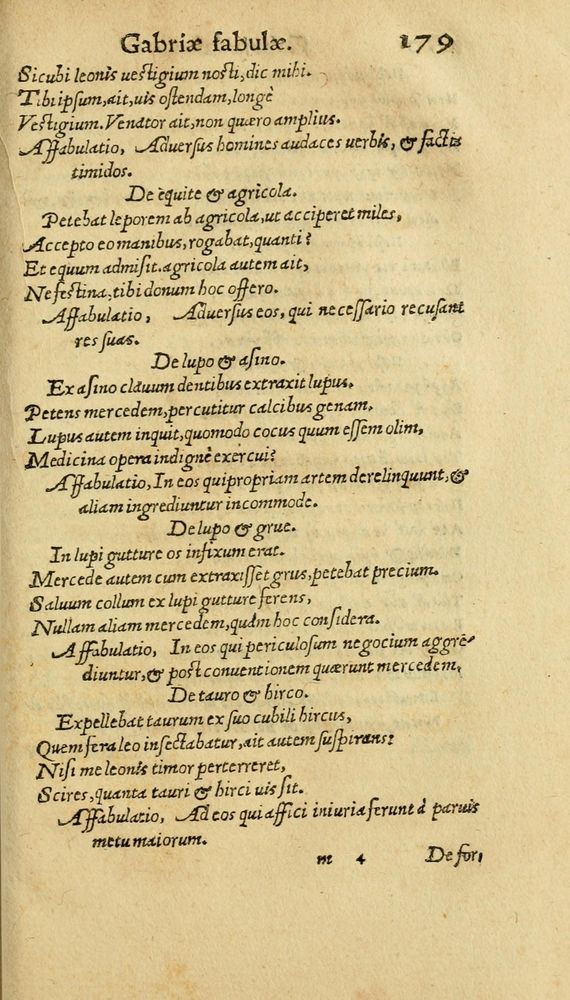 Gabriæ fabulæ. 179
Sicubi leonis uestigium nosti, dic mihi.
Tibi ipsum, ait, uis ostendam, longè
Vestigium. Venator ait, non quæro amplius.
Affabulatio, Aduersus homines audaces uerbis, & factis
timidos.
De equite & agricola.
Petebat leporem ab agricola, ut acciperet miles,
Accepto eo manibus, rogabat, quanti?
Et equum admisit. agricola autem ait,
Ne festina, tibi donum hoc offero.
Affabulatio, Aduersus eos, qui necessario recusant
res suas.
De lupo & asino.
Ex asino clauum dentibus extraxit lupus,
Petens mercedem, percutitur calcibus genam,
Lupus autem inquit, quomodo cocus quum essem olim,
Medicina opera indignè exercui?
Affabulatio, In eos qui propriam artem derelinquunt, &
aliam ingrediuntur incommode.
De lupo & grue.
In lupi gutture os infixum erat.
Mercede autem cum extraxisset grus, petebat precium.
Saluum collum ex lupi gutture ferens,
Nullam aliam mercedem, quàm hoc considera.
Affabulatio, In eos qui periculosum negocium aggre-
diuntur, & post conuentionem quærunt mercedem,
De tauro & hirco.
Expellebat taurum ex suo cubili hircus,
Quem fera leo insectabatur, ait autem suspirans:
Nisi me leonis timor perterreret,
Scires, quanta tauri & hirci uis sit.
Affabulatio, Ad eos qui affici iniuria ferunt à paruis
metu maiorum.
m 4 De for,